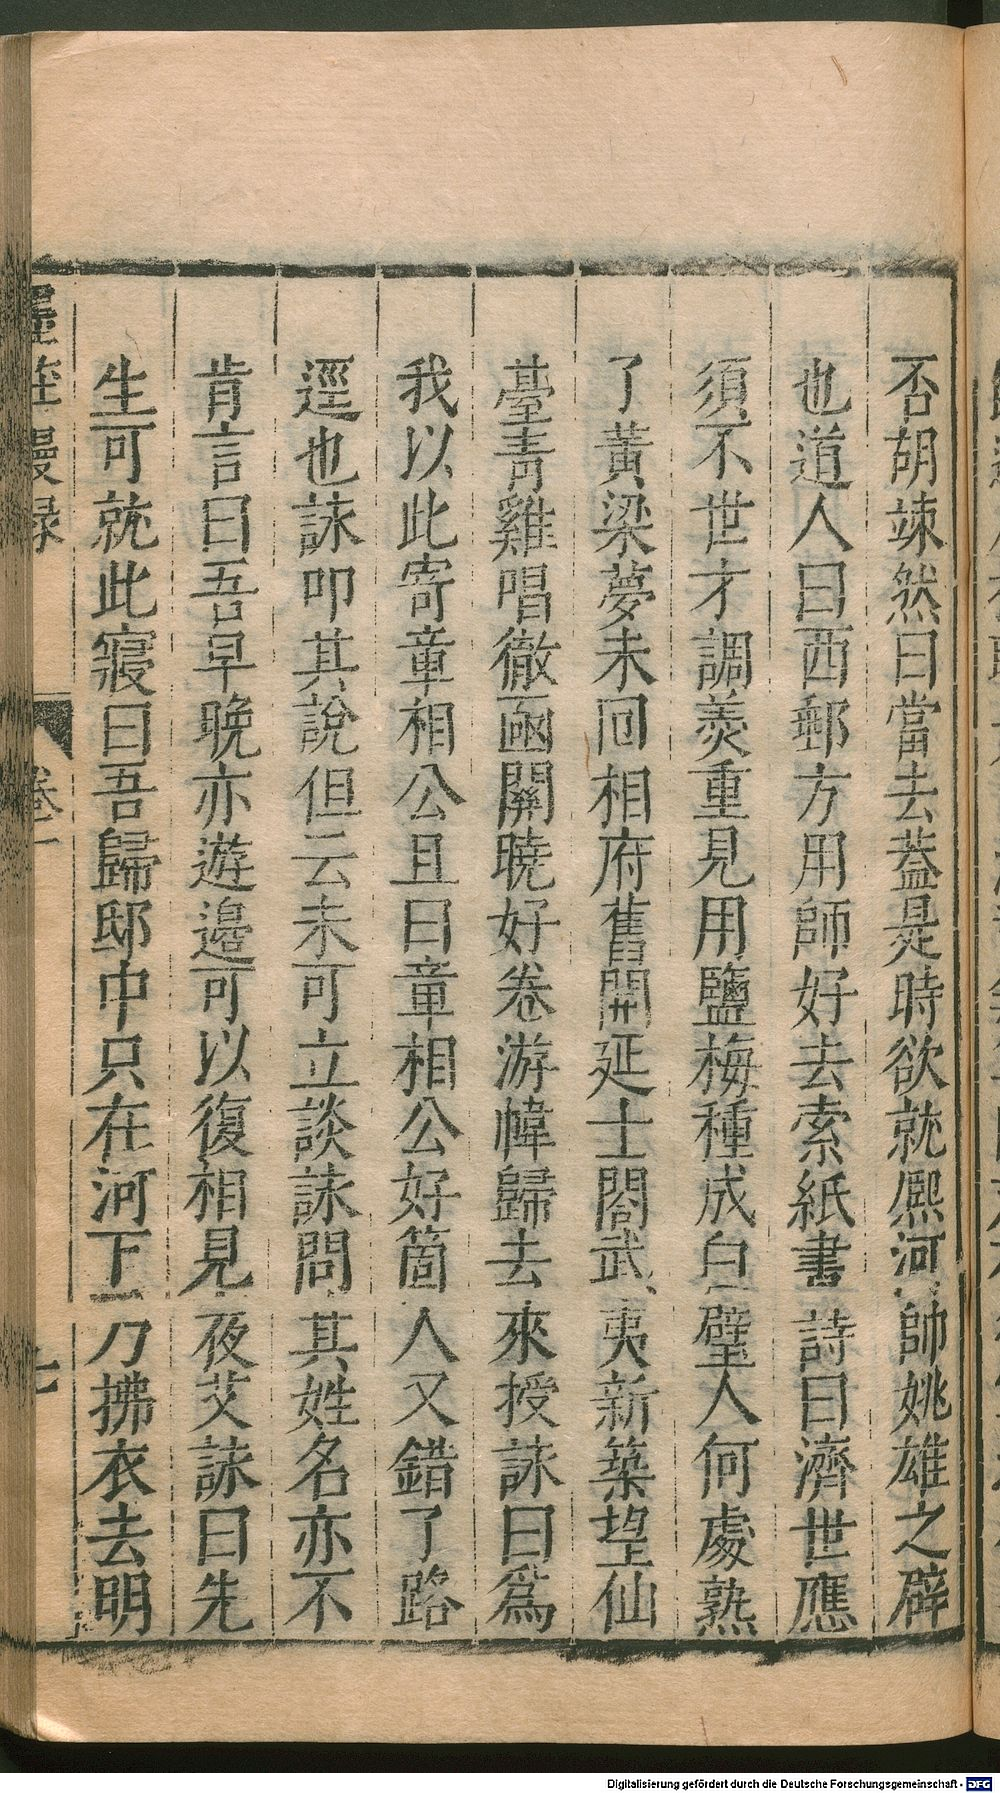 否胡竦然曰當去蓋是時欲就熙河帥姚雄之辟
也道人曰西郵方用師好去索紙書詩曰濟世應
須不世才調羹重見用鹽梅種成白璧人何處熟
了黃梁夢未囘相府舊開延士閤武夷新築望仙
臺青雞唱徹函關曉好卷游幃歸去來授詠曰爲
我以此寄章相公且曰章相公好箇人又錯了路
逕也詠叩其說但云未可立談詠問其姓名亦不
肯言曰吾早晚亦遊邊可以復相見夜艾詠曰先
生可就此寢曰吾歸邸中只在河下一刀拂衣去明
墨莊漫録 卷一 七
Digitalisierung gefördert durch die Deutsche Forschungsgemeinschaft - DFG